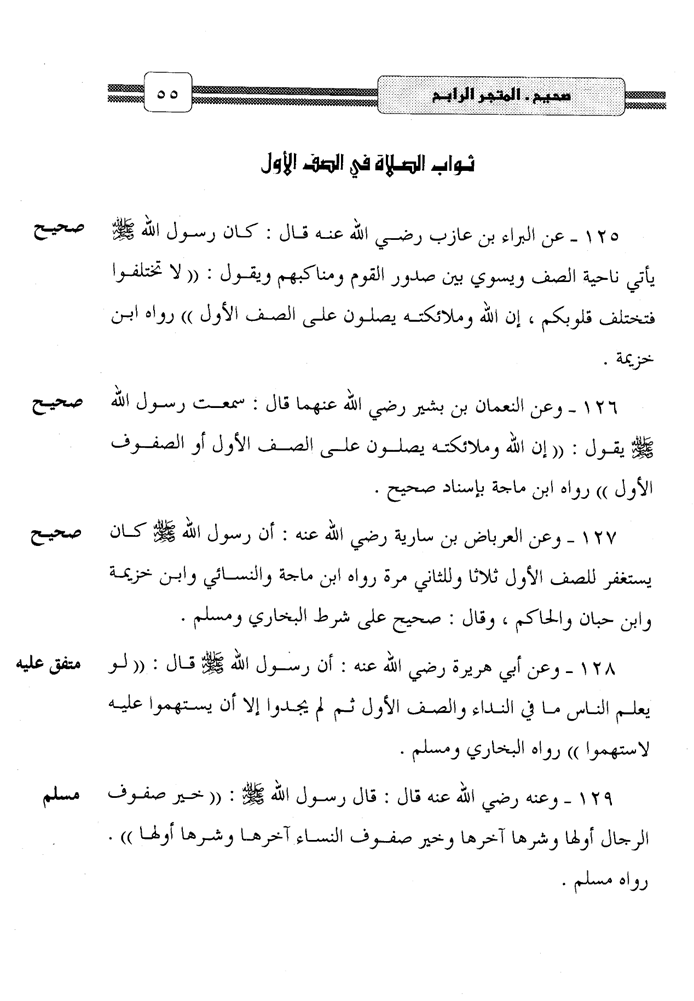 صحيح . المتجر الرابح
٥٥
ثواب الصلاة في الصف الأول
١٢٥ ـ عن البراء بن عازب رضي الله عنه قال : كان رسول الله ﷺ صحيح
يأتي ناحية الصف ويسوي بين صدور القوم ومناكبهم ويقول : (( لا تختلفوا
فتختلف قلوبكم ، إن الله وملائكته يصلون على الصف الأول )) رواه ابن
خزيمة .
١٢٦ ـ وعن النعمان بن بشير رضي الله عنهما قال : سمعت رسول الله صحيح
ﷺ يقول : (( إن الله وملائكته يصلون على الصف الأول أو الصفوف
الأول )) رواه ابن ماجة بإسناد صحيح .
١٢٧ ـ وعن العرباض بن سارية رضي الله عنه : أن رسول الله ﷺ كان صحيح
يستغفر للصف الأول ثلاثا وللثاني مرة رواه ابن ماجة والنسائي وابن خزيمة
وابن حبان والحاكم ، وقال : صحيح على شرط البخاري ومسلم .
١٢٨ ـ وعن أبي هريرة رضي الله عنه : أن رسول الله ﷺ قال : (( لو متفق عليه
يعلم الناس ما في النداء والصف الأول ثم لم يجدوا إلا أن يستهموا عليه
لاستهموا )) رواه البخاري ومسلم .
١٢٩ ـ وعنه رضي الله عنه قال : قال رسول الله ﷺ : (( خير صفوف مسلم
الرجال أولها وشرها آخرها وخير صفوف النساء آخرها وشرها أولها )) .
رواه مسلم .